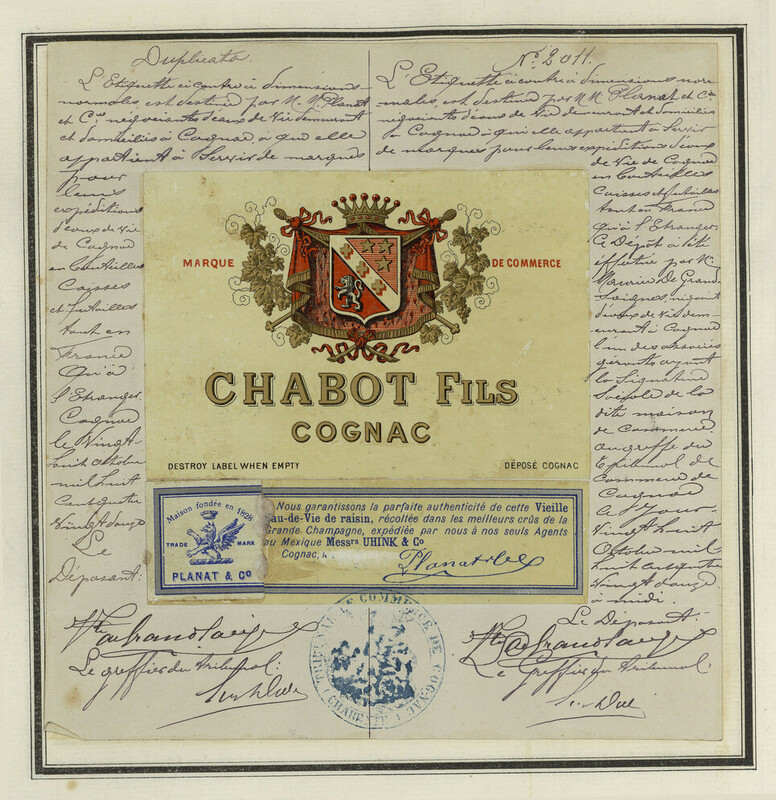 Duplicata
L'Etiquette ci contre à dimensions
normales, est destinée par M. M. Planat
et Cie négociants d'eaux de Vie demeurant
et domiciliés à Cognac, à qui elle
appartient à Servir de marques
pour
leurs
expéditions
d'eaux de Vie
de Cognac
en Bouteilles
Caisses
et futailles
tant en
France
qu'à
l'Etranger
Cognac
le Vingt
huit octobre
mil huit
cent quatre
vingt douze
Le
Déposant:
Le greffier du tribunal:
No 2011.
L'Etiquette ci contre à dimensions nor
males, est destinée par M M Planat et Cie
négociants d'eaux de Vie demeurant et domiciliés
à Cognac à qui elle appartient à Servir
de marques pour leurs expéditions d'eaux
de Vie de Cognac
en Bouteilles
Caisses et futailles
tant en France
qu'à l'Etranger
Ce Dépôt a été
effectué par M.
de Grand
négociant
d'eaux de Vie dem-
eurant à Cognac
l'un des associés
gérants ayant
la Signature
Sociale de la
dite maison
de Commerce
au greffe du
Tribunal de
Commerce de
Cognac
le Vingt huit
Octobre mil
huit cent quatre
vingt douze
à midi.
Le Déposant:
Le Greffier du tribunal:
MARQUE DE COMMERCE
CHABOT FILS
COGNAC
DESTROY LABEL WHEN EMPTY
DÉPOSÉ COGNAC
Maison fondée en 1828
TRADE MARK
PLANAT & Co
Nous garantissons la parfaite authenticité de cette Vieille
au-de-Vie de raisin, récoltée dans les meilleurs crûs de la
Grande Champagne, expédiée par nous à nos seuls Agents
au Mexique Messrs UHINK & Co
Cognac,
Planat & Co
TRIBUNAL DE COMMERCE DE COGNAC
(CHARENTE)